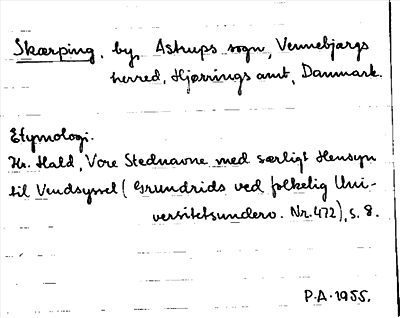 Skærping, by, Astrups sogn, Vennebjærgs
herred, Hjørrings amt, Danmark.
Etymologi.
Kr. Hald, Vore Stednavne med særligt Hensyn
til Vendsyssel (Grundrids ved folkelig Uni-
versitetsunderv. Nr. 472), s. 8.
P.A. 1955.